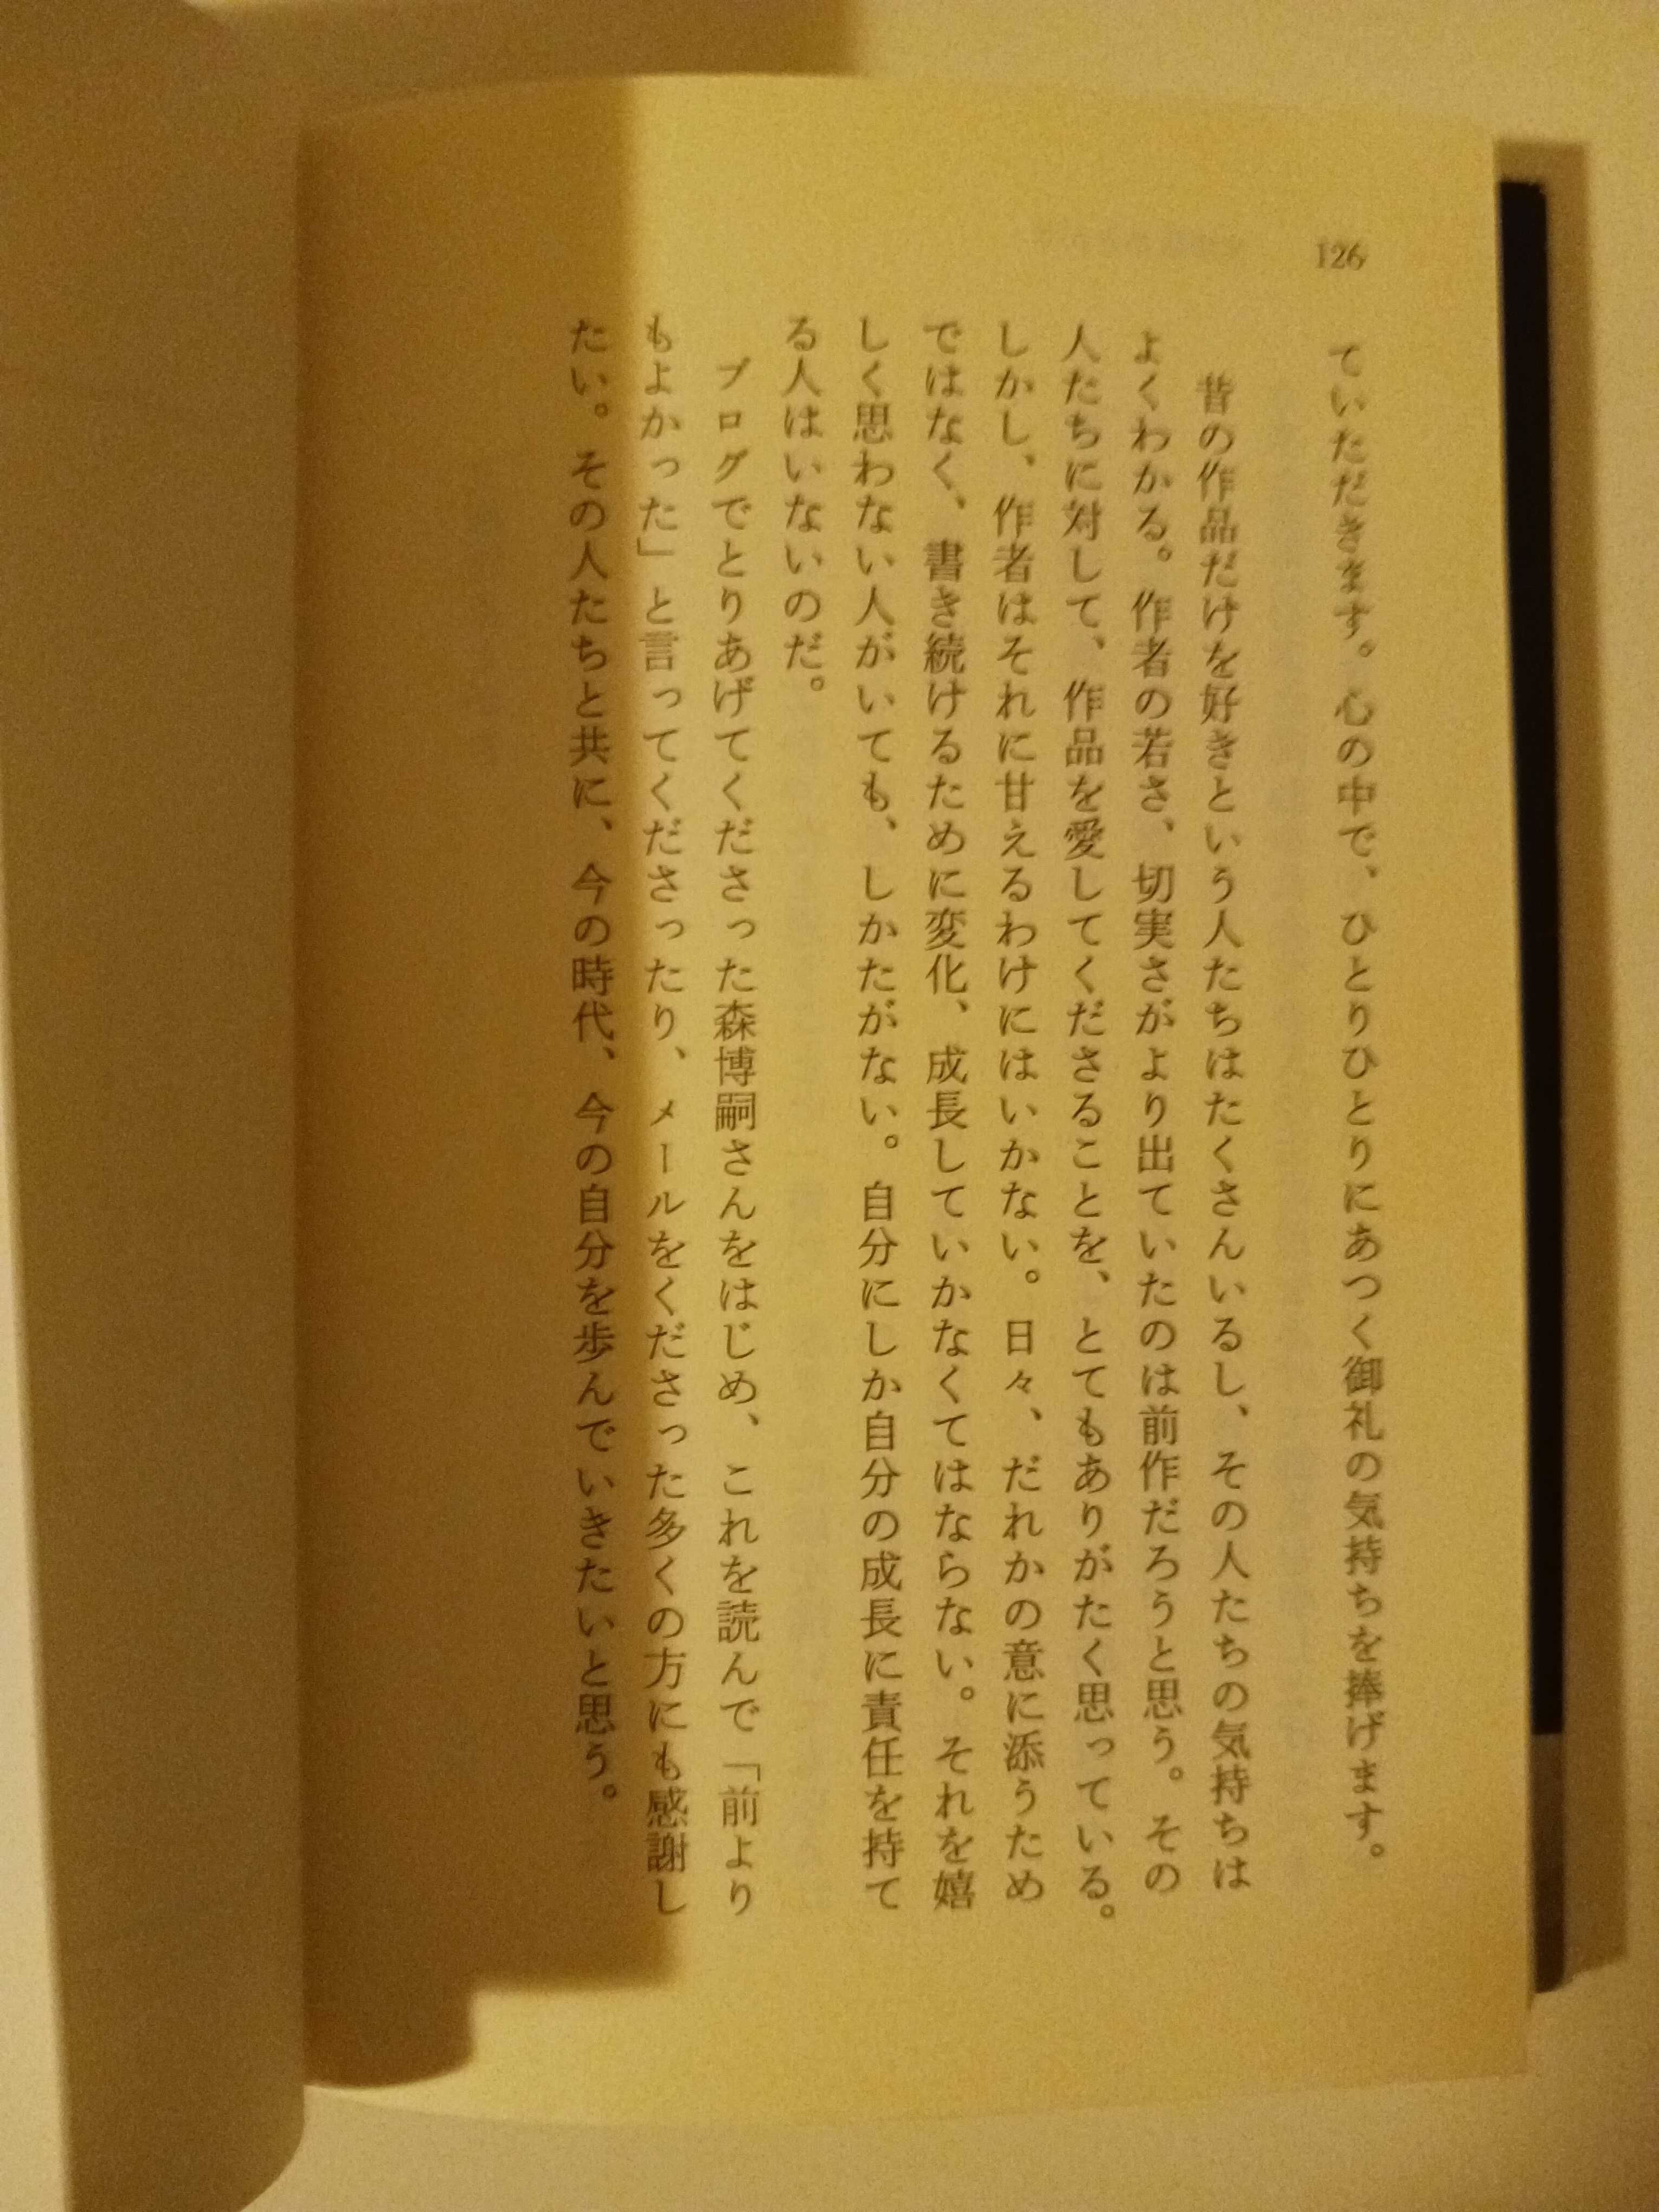 126
ていただきます。心の中で、ひとりひとりにあつく御礼の気持ちを捧げます。
昔の作品だけを好きという人たちはたくさんいるし、その人たちの気持ちは
よくわかる。作者の若さ、切実さがより出ていたのは前作だろうと思う。その
人たちに対して、作品を愛してくださることを、とてもありがたく思っている。
しかし、作者はそれに甘えるわけにはいかない。日々、だれかの意に添うため
ではなく、書き続けるために変化、成長していかなくてはならない。それを嬉
しく思わない人がいても、しかたがない。自分にしか自分の成長に責任を持て
る人はいないのだ。
ブログでとりあげてくださった森博嗣さんをはじめ、これを読んで「前より
もよかった」と言ってくださったり、メールをくださった多くの方にも感謝し
たい。その人たちと共に、今の時代、今の自分を歩んでいきたいと思う。